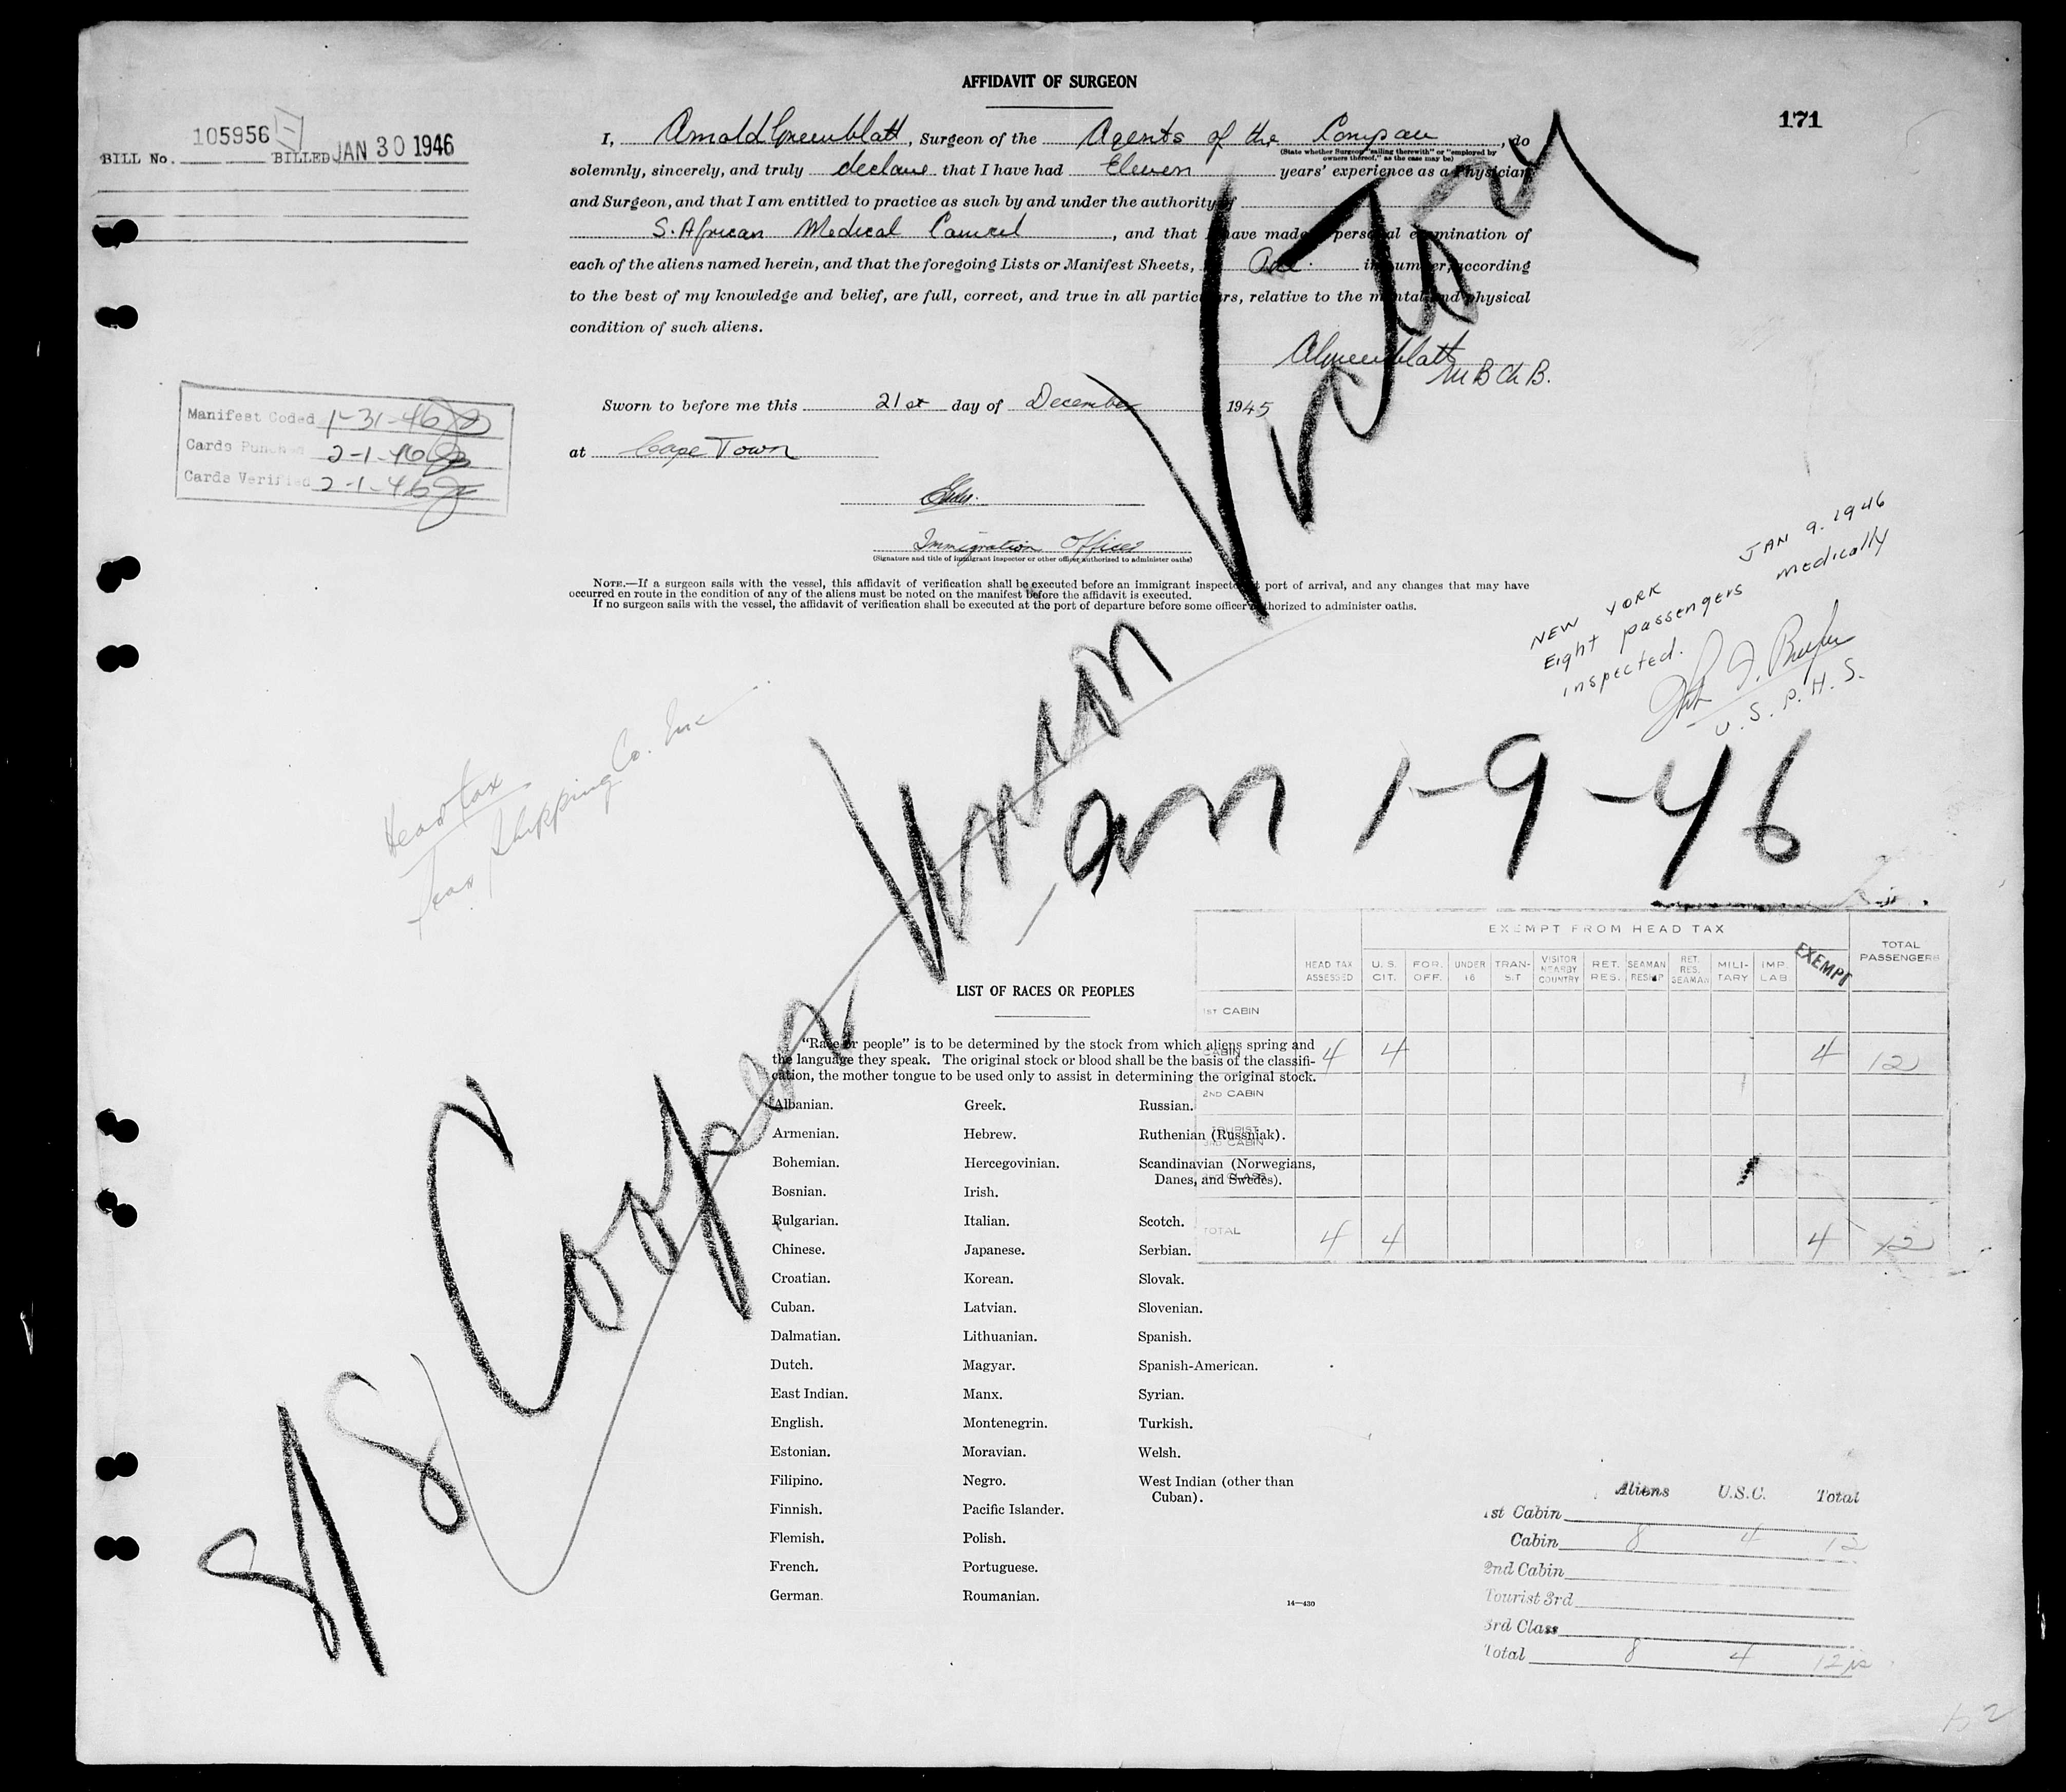 AFFIDAVIT OF SURGEON
171
105956
BILL No. BILLED JAN 30 1946
I, Arnold Greenblatt, Surgeon of the Agents of the , do
(State whether Surgeon "sailing therewith" or "employed by
owners thereof," as the case may be)
solemnly, sincerely, and truly declare that I have had Eleven years' experience as a Physician
and Surgeon, and that I am entitled to practice as such by and under the authority of
S. African Medical Council, and that I have made a personal examination of
each of the aliens named herein, and that the foregoing Lists or Manifest Sheets, in number, according
to the best of my knowledge and belief, are full, correct, and true in all particulars, relative to the mental and physical
condition of such aliens.
AGreenblatt
M B Ch B.
Sworn to before me this 21st day of December 1945
at Cape Town
Immigration Officer
(Signature and title of immigrant inspector or other officer authorized to administer oaths)
NOTE.—If a surgeon sails with the vessel, this affidavit of verification shall be executed before an immigrant inspector at port of arrival, and any changes that may have
occurred en route in the condition of any of the aliens must be noted on the manifest before the affidavit is executed.
If no surgeon sails with the vessel, the affidavit of verification shall be executed at the port of departure before some officer authorized to administer oaths.
Manifest Coded 1-31-46
Cards Punched 2-1-46
Cards Verified 2-1-46
NEW YORK JAN 9. 1946
Eight passengers medically
inspected.
U. S. P. H. S.
Head tax
Shipping Co. Inc
S/S Copper Victory
arr 1-9-46
EXEMPT FROM HEAD TAX
HEAD TAX ASSESSED U.S. CIT. FOR. OFF. UNDER 16 TRANSIT VISITOR NEARBY COUNTRY RET. RES. SEAMAN RESHIP RET. RES. SEAMAN MILITARY IMP. LAB. EXEMPT TOTAL PASSENGERS
1ST CABIN
CABIN 4 4 4 12
2ND CABIN
TOURIST
3RD CABIN
3RD CLASS
TOTAL 4 4 4 12
LIST OF RACES OR PEOPLES
"Race or people" is to be determined by the stock from which aliens spring and
the language they speak. The original stock or blood shall be the basis of the classifi-
cation, the mother tongue to be used only to assist in determining the original stock.
Albanian.
Armenian.
Bohemian.
Bosnian.
Bulgarian.
Chinese.
Croatian.
Cuban.
Dalmatian.
Dutch.
East Indian.
English.
Estonian.
Filipino.
Finnish.
Flemish.
French.
German.
Greek.
Hebrew.
Hercegovinian.
Irish.
Italian.
Japanese.
Korean.
Latvian.
Lithuanian.
Magyar.
Manx.
Montenegrin.
Moravian.
Negro.
Pacific Islander.
Polish.
Portuguese.
Roumanian.
Russian.
Ruthenian (Russniak).
Scandinavian (Norwegians,
Danes, and Swedes).
Scotch.
Serbian.
Slovak.
Slovenian.
Spanish.
Spanish-American.
Syrian.
Turkish.
Welsh.
West Indian (other than
Cuban).
14—430
Aliens U.S.C. Total
1st Cabin
Cabin 8 4 12
2nd Cabin
Tourist 3rd
3rd Class
Total 8 4 12